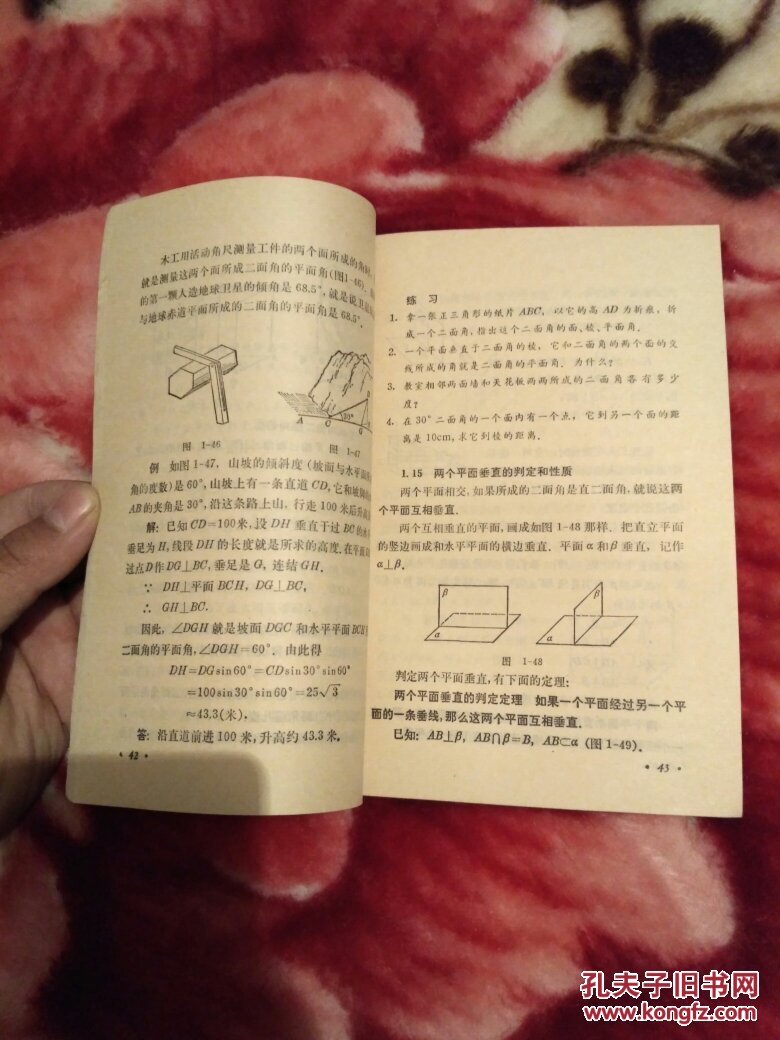 木工用活动角尺测量工件的两个面所成的角时,
就是测量这两个面所成二面角的平面角(图1-46).
的第一颗人造地球卫星的倾角是68.5°,就是说卫星
与地球赤道平面所成的二面角的平面角是68.5°.
A C G
30°
图 1-46 图 1-47
例 如图1-47,山坡的倾斜度(坡面与水平面
角的度数)是60°,山坡上有一条直道CD,它和坡脚
AB的夹角是30°,沿这条路上山,行走100米后升高
解: 已知CD=100米,设DH垂直于过BC的水
垂足为H,线段DH的长度就是所求的高度.在平面
过点D作DG⊥BC,垂足是G,连结GH.
∵ DH⊥平面BCH,DG⊥BC,
∴ GH⊥BC.
因此,∠DGH就是坡面DGC和水平平面BCH
二面角的平面角,∠DGH=60°.由此得
DH=DGsin60°=CDsin30°sin60°
=100sin30°sin60°=25√3
≈43.3(米).
答: 沿直道前进100米,升高约43.3米.
• 42 •
练 习
1. 拿一张正三角形的纸片ABC,以它的高AD为折痕,折
成一个二面角,指出这个二面角的面、棱、平面角.
2. 一个平面垂直于二面角的棱,它和二面角的两个面的交
线所成的角就是二面角的平面角.为什么?
3. 教室相邻两面墙和天花板两两所成的二面角各有多少
度?
4. 在30°二面角的一个面内有一个点,它到另一个面的距
离是10cm,求它到棱的距离.
1.15 两个平面垂直的判定和性质
两个平面相交,如果所成的二面角是直二面角,就说这两
个平面互相垂直.
两个互相垂直的平面,画成如图1-48那样.把直立平面
的竖边画成和水平平面的横边垂直.平面α和β垂直,记作
α⊥β.
β β
α α
图 1-48
判定两个平面垂直,有下面的定理:
两个平面垂直的判定定理 如果一个平面经过另一个平
面的一条垂线,那么这两个平面互相垂直.
已知: AB⊥β,AB∩β=B,AB⊂α(图1-49).
• 43 •
孔夫子旧书网
www.kongfz.com